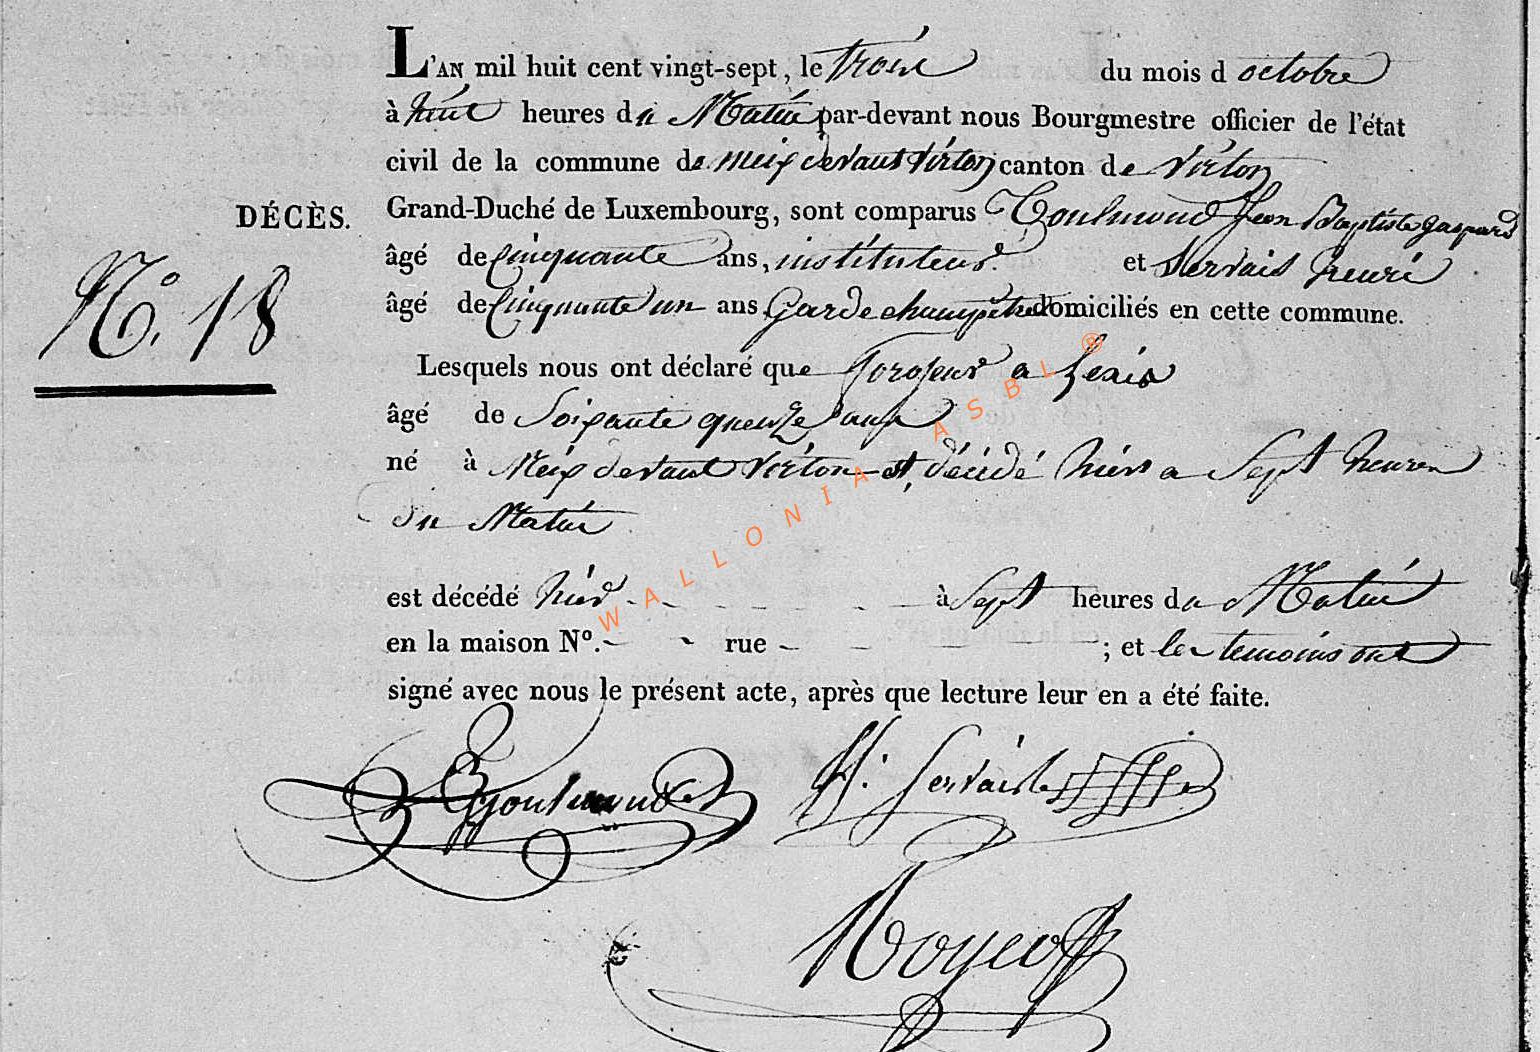 L'AN mil huit cent vingt-sept, le trois du mois d octobre
à huit heures du Matin par-devant nous Bourgmestre officier de l'état
civil de la commune de meix devant Virton canton de Virton
DÉCÈS. Grand-Duché de Luxembourg, sont comparus Goulmond Jean Baptiste gaspard
âgé de Cinquante ans, instituteur. et Servais henri
No. 18
âgé de Cinquante un ans Garde champêtre domiciliés en cette commune.
Lesquels nous ont déclaré que a
âgé de Soixante quenze ans
né à Meix devant Virton est décédé hier a Sept heures
du Matin
est décédé hier à Sept heures du Matin
en la maison No. rue ; et les temoins ont
signé avec nous le présent acte, après que lecture leur en a été faite.
Goulmond H. Servais
WALLONIA ASBL ®